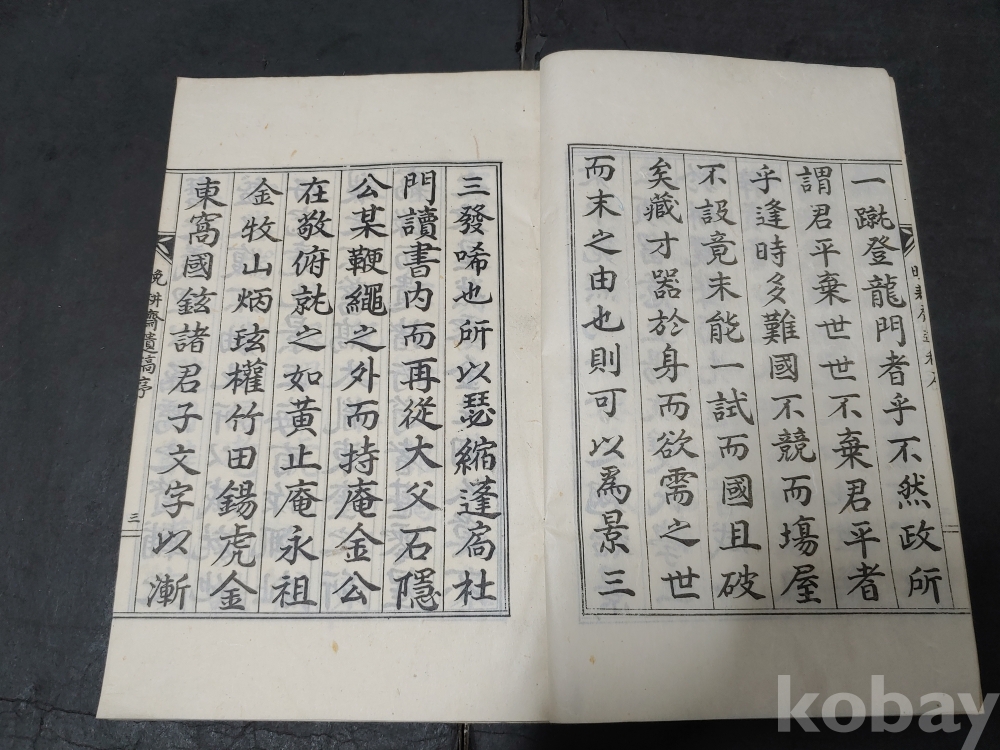 一蹴登龍門者乎不然政所
謂君平棄世世不棄君平者
乎逢時多難國不競而塲屋
不設竟未能一試而國且破
矣藏才器於身而欲需之世
而末之由也則可以爲景三
三發唏也所以瑟縮蓬扃杜
門讀書内而再從大父石隱
公某鞭繩之外而持庵金公
在敬俯就之如黃止庵永祖
金牧山炳玹權竹田錫虎金
東窩國鉉諸君子文字以漸
晚畊齋遺稿序
三
kobay